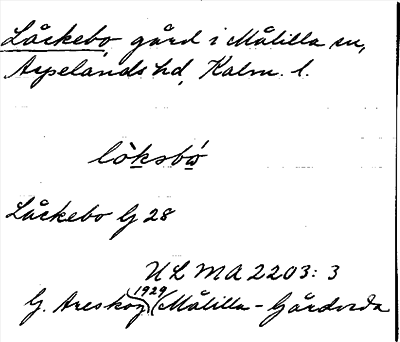 Låckebo, gård i Målilla sn,
Aspelands hd, Kalm. l.
lòksbó
Låckebo G 28
ULMA 2203: 3
G. Areskog 1929 (Målilla - Gårdveda